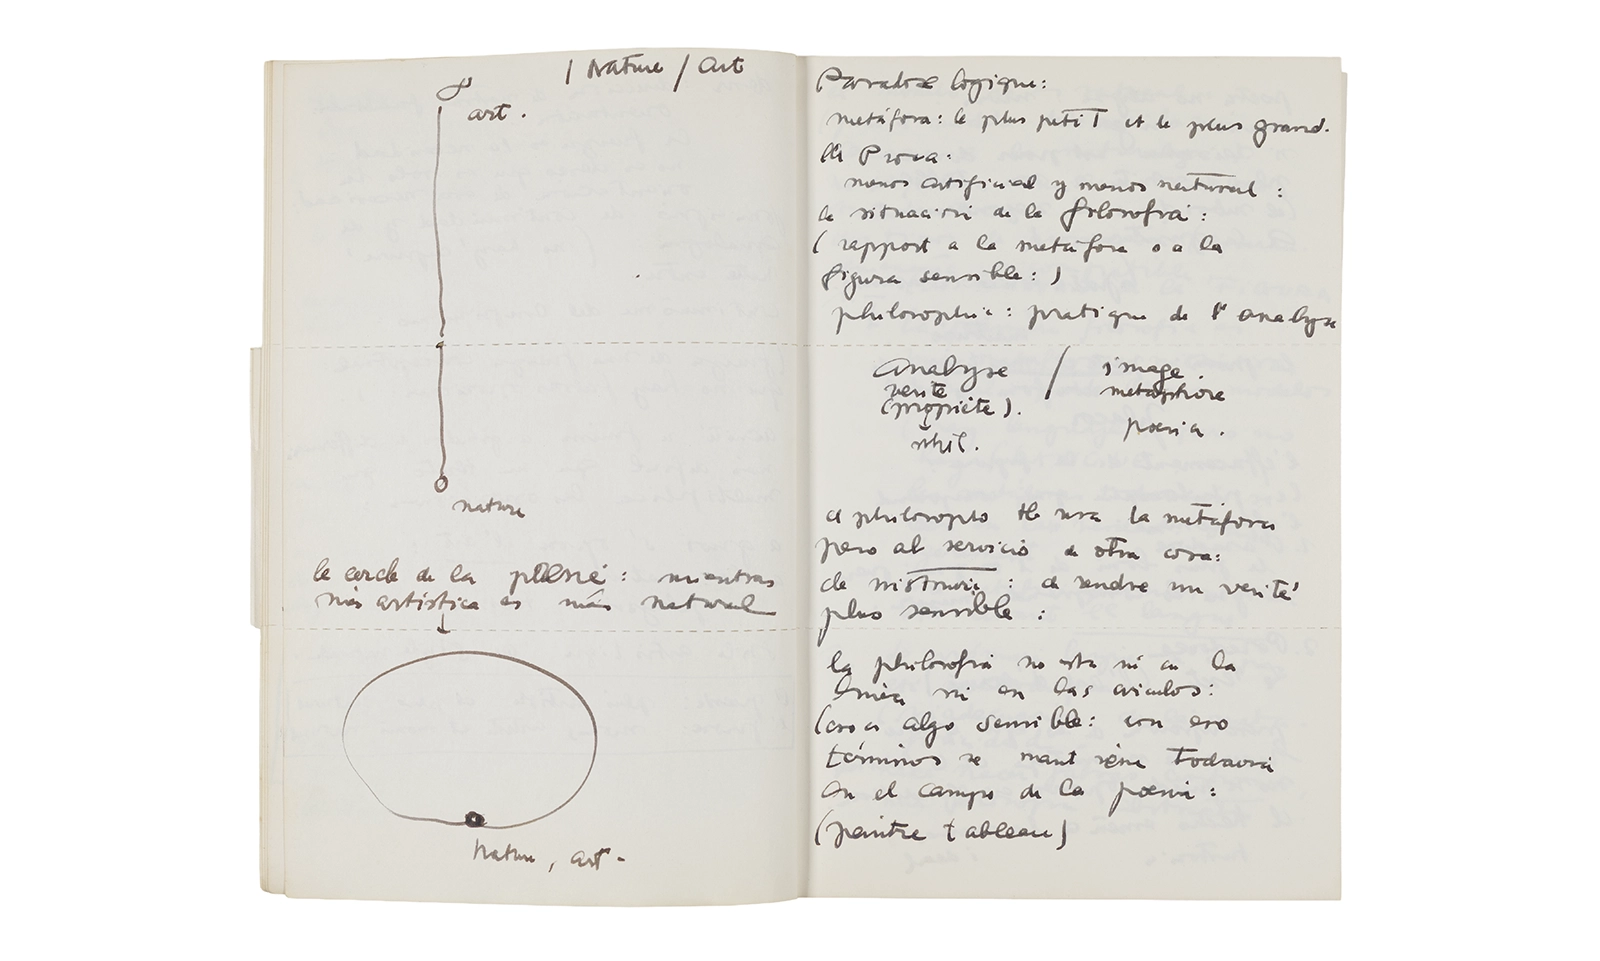 / Nature / art
art.
nature
le cercle de la poésie : mientras
más artística es más natural
Nature, art.
Paradoxe logique:
metáfora: le plus petit et le plus grand.
Prosa:
menos artificial y menos natural :
situación de la filosofía :
( rapport a la metáfora o a la
figura sensible : )
philosophie : pratique de l'analyse
analyse / image.
verité metaphore
(propiété). poesia.
util.
philosopho usa la metáfora
pero al servicio de otra cosa:
de : de rendre un verité
plus sensible :
la philosofia no esta ni en la
linea ni en las circulos :
algo sensible : con eso
términos se mantiene todavia
en el campo de la poesia :
(peintre tableau)